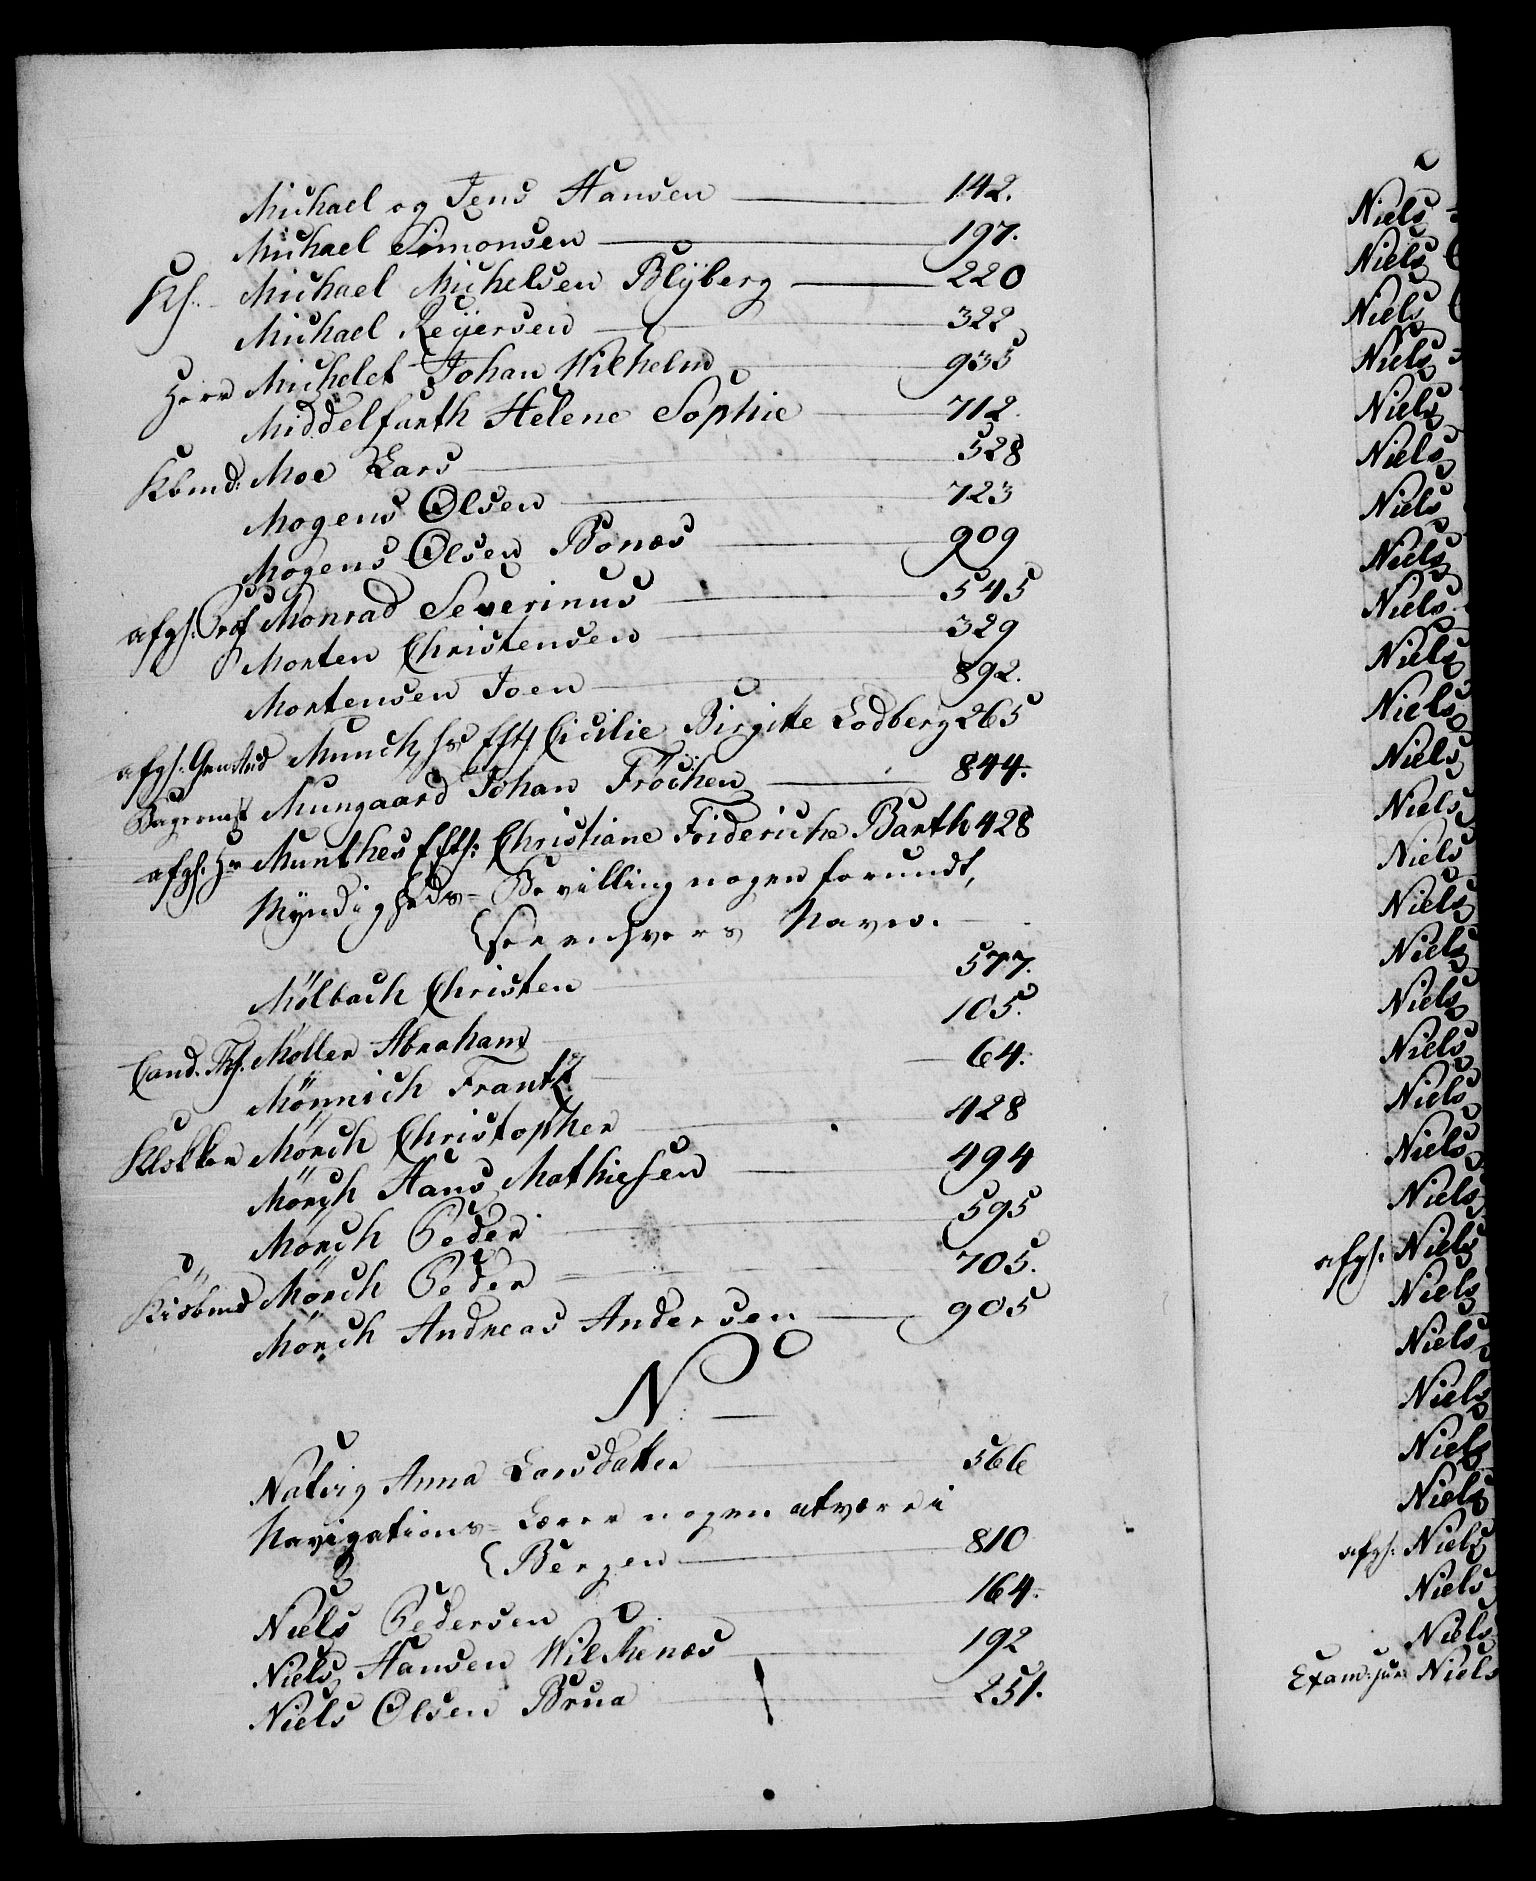 Michael og Jens Hansen 142.
Michael Simonsen 197.
Michael Michelsen Blÿberg 220
Michael Reÿersen 322
Herr Michelet Johan Wilhelm 935
Middelfarth Helene Sophie 712.
Kbmd: Moe Lars 528
Mogens Olsen 723
Mogens Olsen Bonæs 909
afg: Prof Monrad Severinus 545
Morten Christensen 329
Mortensen Joen 892.
afg: Munch, Eft: Cicilie Birgitte Lodberg 265
Bagermest Mungaard Johan Fröchen 844.
afg: Hr Munthes Eft: Christiane Frideriche Barth 428
Myndigheds-Bevilling nogen forundt,
see enhvers Navn.
Mölbach Christen 577.
Cand. Th. Møller Abraham 105.
Mönnich Frantz 64.
Klokker Mörch Christopher 428
Mörch Hans Mathiesen 494
Mörch Peder 595
Kiöbmd Mörch Peder 705.
Mörch Andreas Andersen 905
N
Natvig Anna Larsdatter 566
Navigations-Lærer nogen at være i
Bergen 810
Niels Pedersen 164.
Niels Hansen Wilkenæs 192
Niels Olsen Brua 251.
Niels
Niels
Niels
Niels
Niels
Niels
Niels
Niels
Niels
Niels
Niels
Niels
Niels
Niels
Niels
Niels
Niels
Niels
Niels
Niels
Niels
afg: Niels
Niels
Niels
Niels
Niels
Niels
afg: Niels
Niels
Niels
Exam: jur: Niels